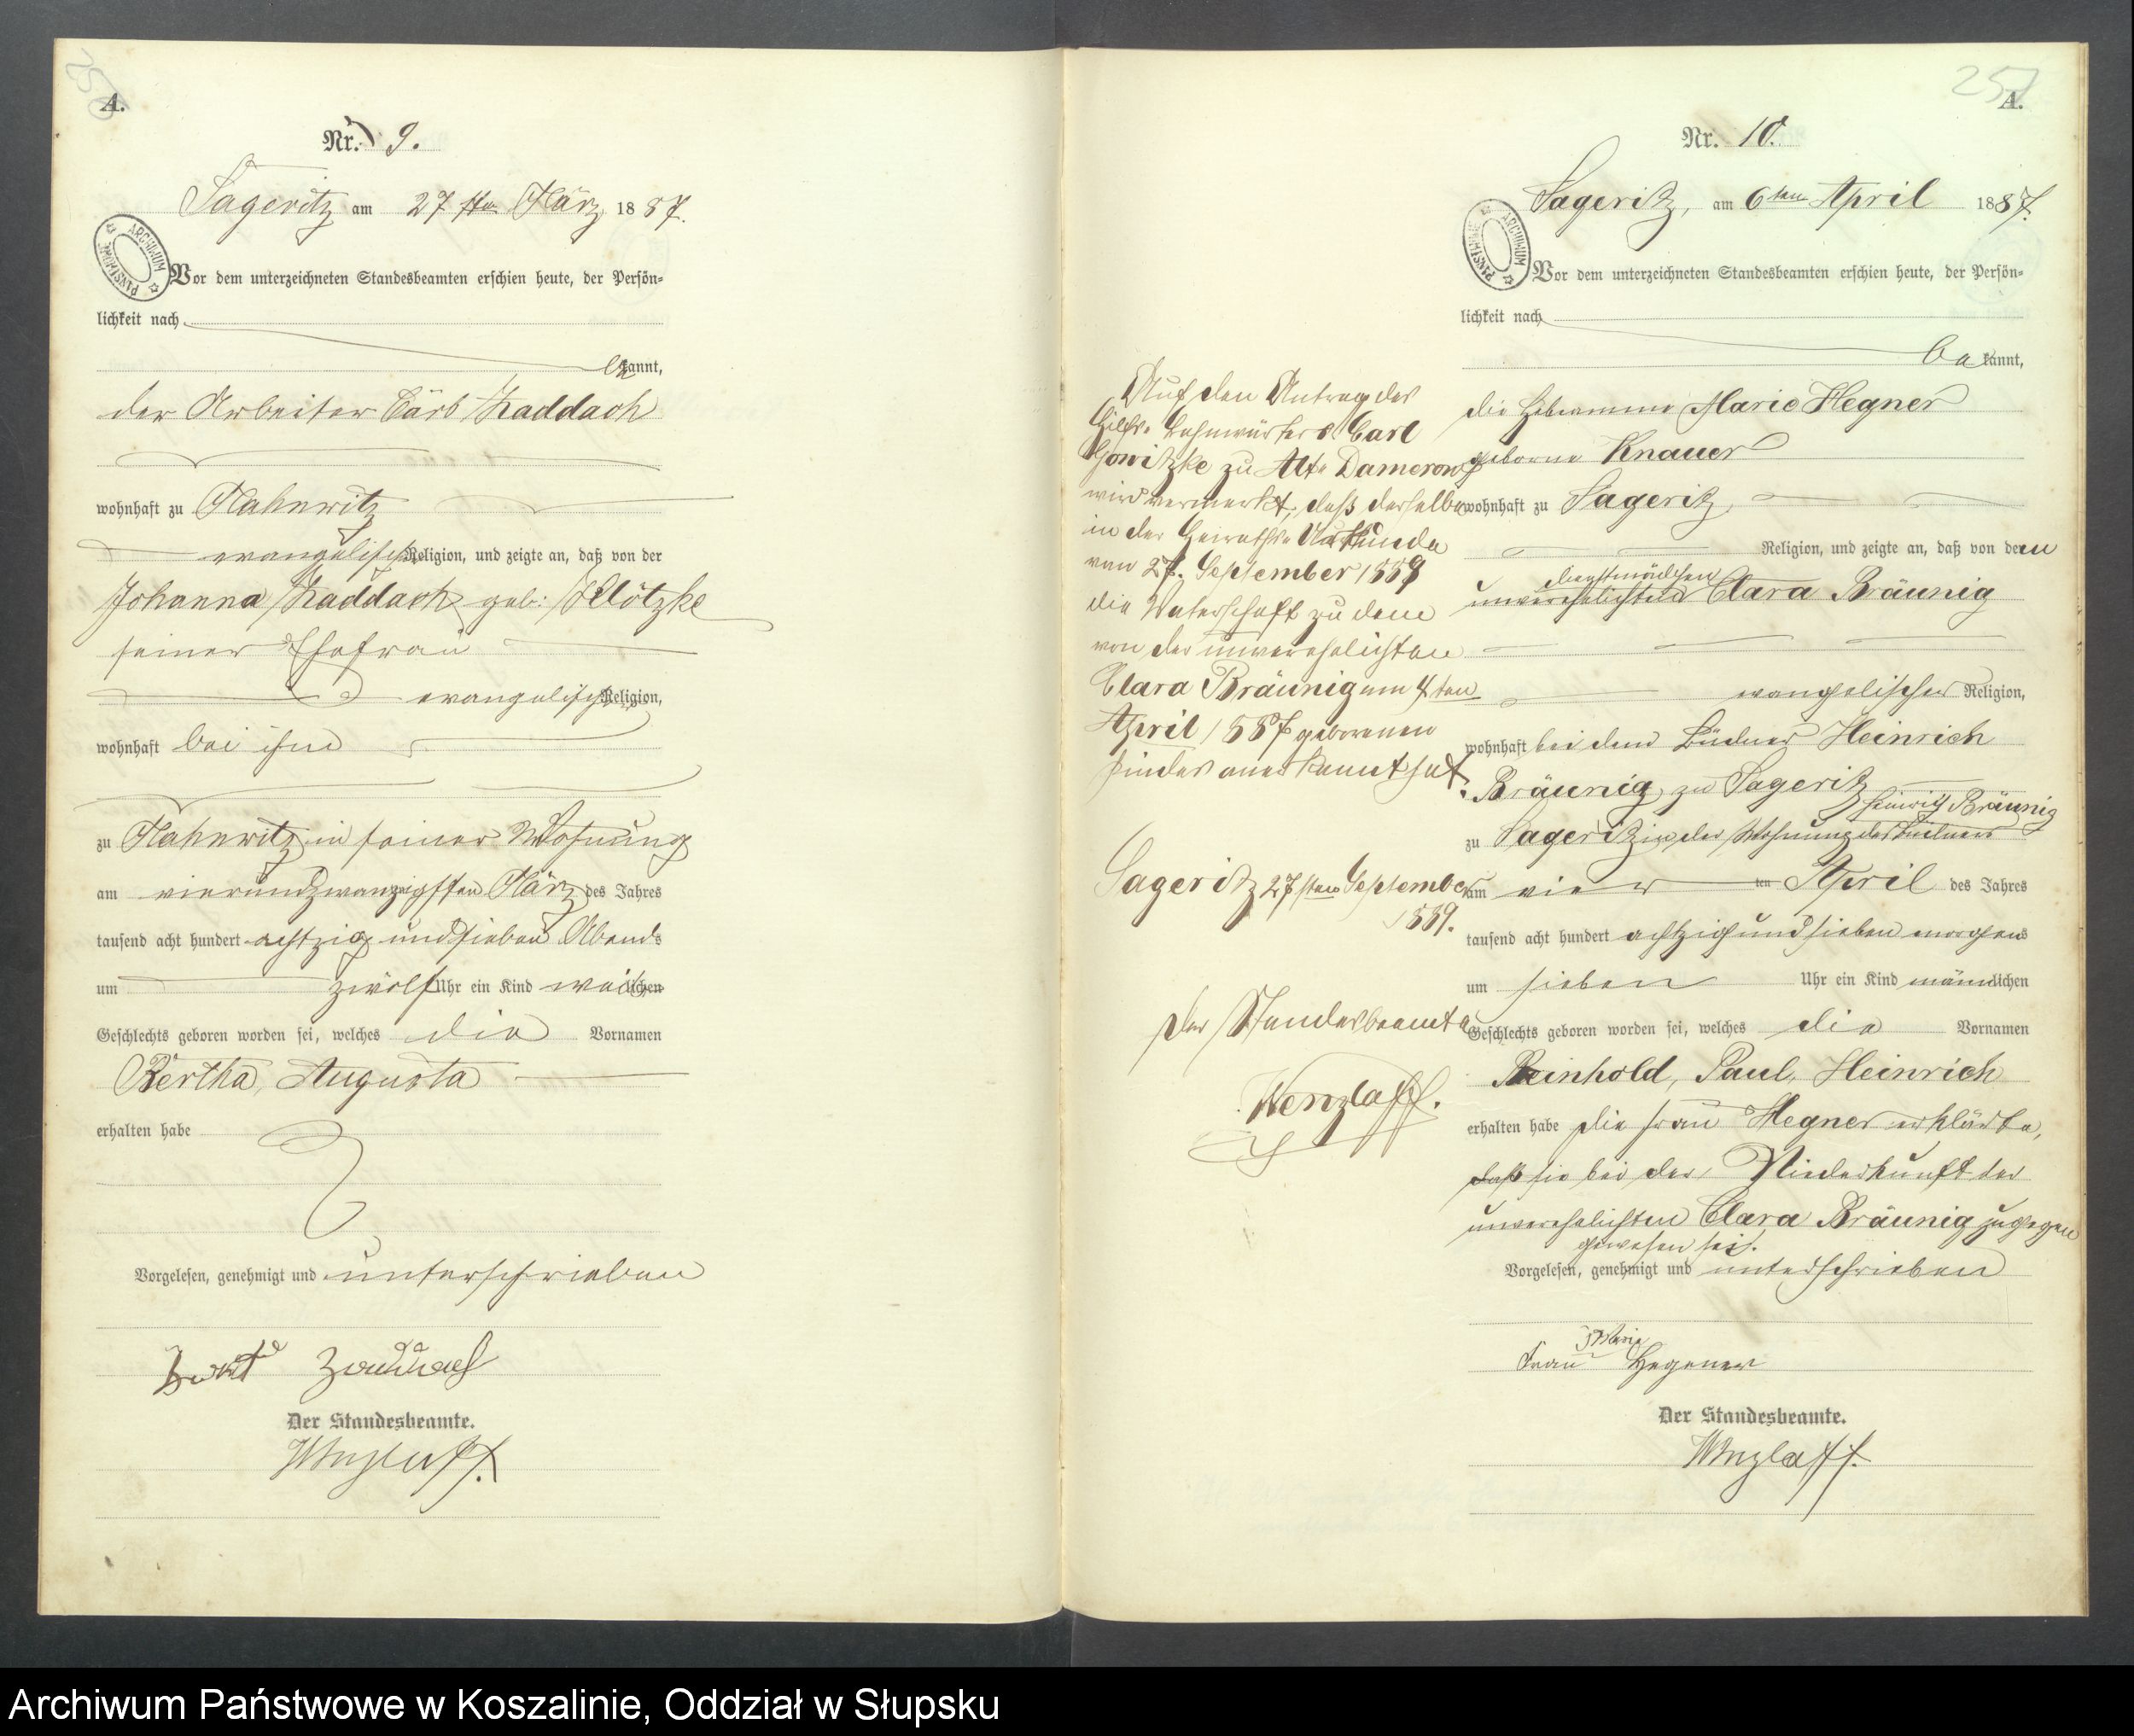 A.
Nr. 9.
Sageritz am 27 ten März 1887.
Vor dem unterzeichneten Standesbeamten erschien heute, der Persön-
lichkeit nach
bekannt,
der Arbeiter Zaddach
wohnhaft zu Mahnwitz
evangelischer Religion, und zeigte an, daß von der
Johanna Zaddach geb: Klötzke
seiner Ehefrau
evangelischer Religion,
wohnhaft bei ihm
zu Mahnwitz in seiner Wohnung
am vierundzwanzigsten März des Jahres
tausend acht hundert achtzig und sieben Abends
um zwölf Uhr ein Kind weiblichen
Geschlechts geboren worden sei, welches die Vornamen
Bertha, Augusta
erhalten habe
Vorgelesen, genehmigt und unterschrieben
Zaddach
Der Standesbeamte.
Wenzlaff.
257
A.
Nr. 10.
Sageritz, am 6ten April 1887.
Vor dem unterzeichneten Standesbeamten erschien heute, der Persön-
lichkeit nach
bekannt,
die Hebamme Marie Hegner
geborne Knauer
wohnhaft zu Sageritz,
Religion, und zeigte an, daß von der
Dienstmädchen
unverehelichten Clara Bräunig
evangelischer Religion,
wohnhaft bei dem Büdner Heinrich
Bräunig zu Sageritz
Heinrich Bräunig
zu Sageritz in der Wohnung des Büdners
am vier ten April des Jahres
tausend acht hundert achtzig und sieben morgens
um sieben Uhr ein Kind männlichen
Geschlechts geboren worden sei, welches die Vornamen
Reinhold, Paul, Heinrich
erhalten habe die Frau Hegner erklärte,
daß sie bei der Niederkunft der
unverehelichten Clara Bräunig zugegen
gewesen sei.
Vorgelesen, genehmigt und unterschrieben
Marie
Frau Hegener
Der Standesbeamte.
Wenzlaff.
Auf den Antrag des
Hilfs- Bahnwärters Carl
Gowitzke zu Alt- Damerow
wird vermerkt, daß derselbe
in der Heiraths- Urkunde
von 27. September 1889
die Vaterschaft zu dem
von der unverehelichten
Clara Bräunig am 4ten
April 1887 geborenen
Kindes anerkannt hat.
Sageritz 27sten September
1889.
Der Standesbeamte
Wenzlaff.
ARCHIWUM PAŃSTWOWE
ARCHIWUM PAŃSTWOWE
Archiwum Państwowe w Koszalinie, Oddział w Słupsku